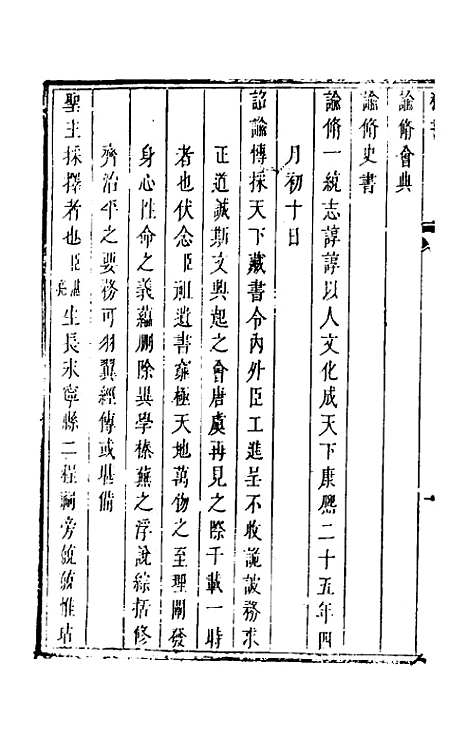 諭脩會典
諭脩史書
諭脩一統志諄諄以人文化成天下康熙二十五年四
月初十日
詔諭傳採天下藏書令內外臣工進呈不收詭詖務求
正道誠斯文興起之會唐虞再見之際千載一時
者也伏念臣祖遺書窮極天地萬物之至理闡發
身心性命之義蘊刪除異學榛蕪之浮說綜括修
齊治平之要務可羽翼經傳或堪備
聖主採擇者也臣生長永寧縣二程祠旁兢兢惟